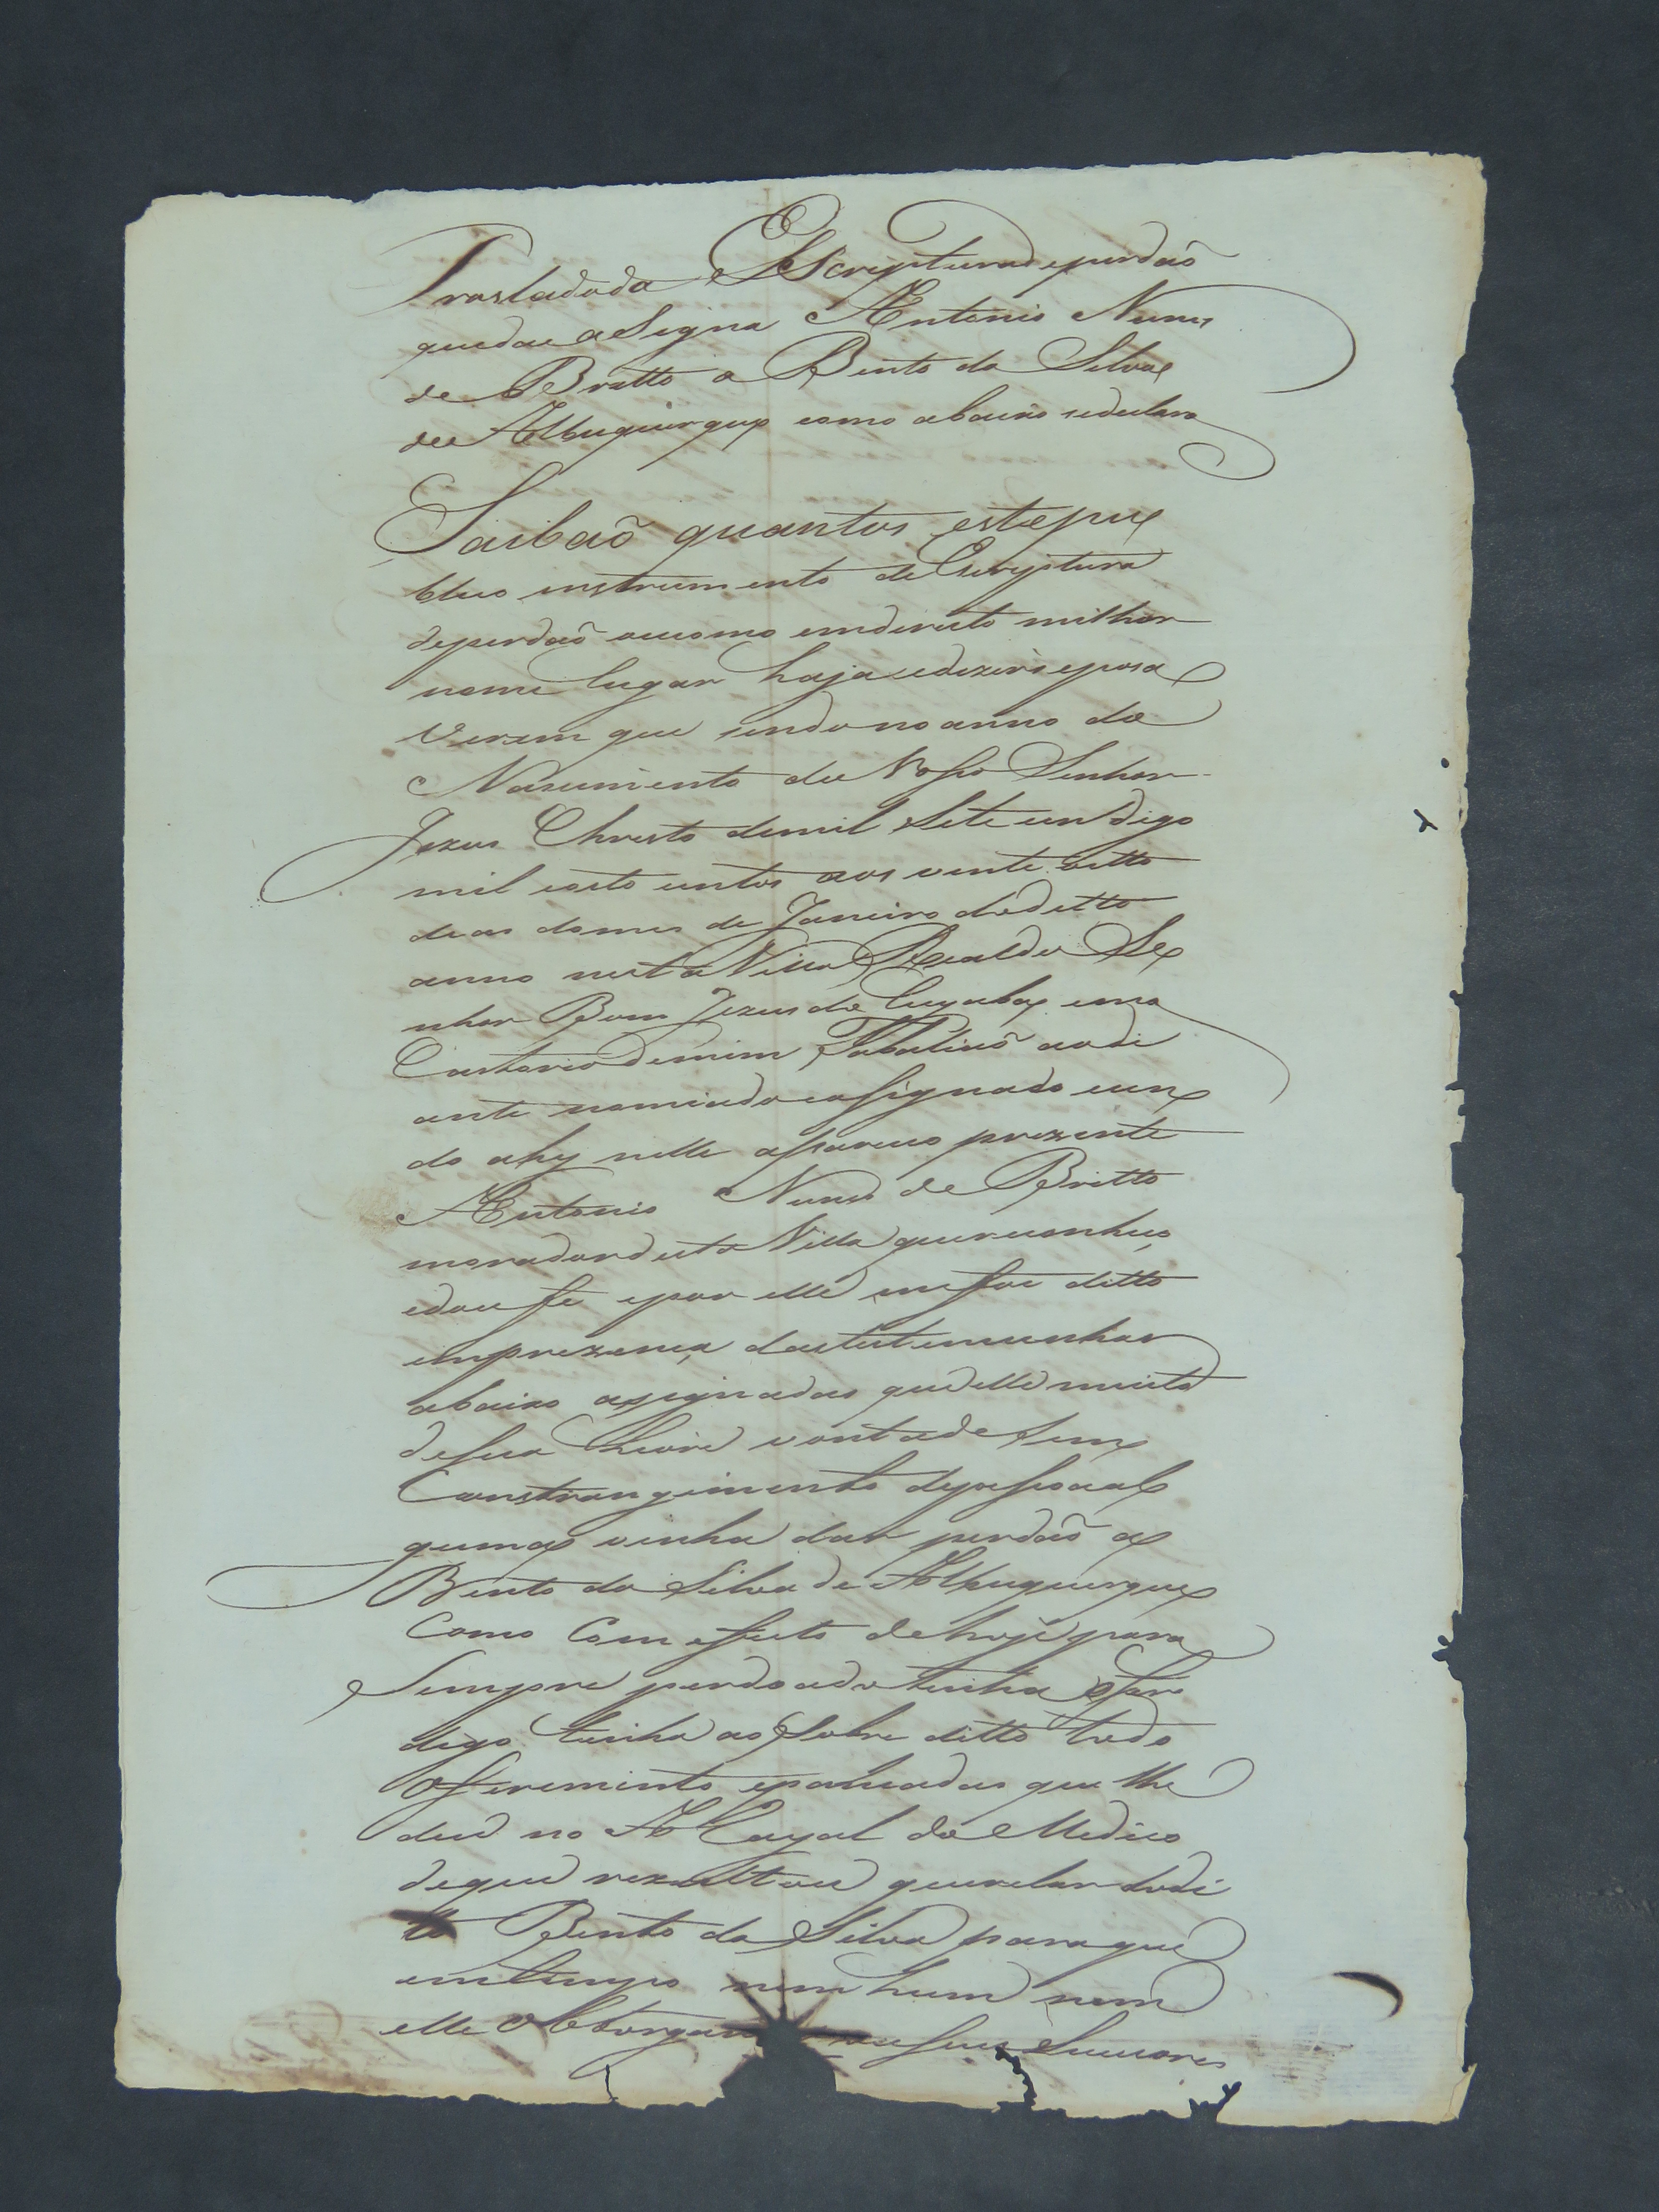 Trasladoda EScripturadeperdaõ
quedae aSigna Antonio Nunes
de Britto a Bento da Silva
de Albuquerque como abaixo sedeclara
Saibaõ quantos estepu
blico instrumento deEscriptura
deperdaõ oucomo emdireito milhor
nome lugar haja sedizer eposa
virem que sendo no anno do
Nascimento de Nosso Senhor
Jezus Christo demil Sete cen digo
mil oito centos aos vinte oitto
dias domes de Janeiro doditto
anno nesta Villa Realdo Se
nhor Bom Jezus do Cuyaba em o
Cartorio demim Tabaliaõ aodi
ante nomeado eassignado sen
do ahy nelle apareceo prezente
Antonio Nunes de Britto
moradordesta Villa quereconheço
edou fé epor elle mefoi ditto
emprezença dastestemunhas
abaixo asignadas que elle muito
desua livre vontade Sem
Constrangimento depessoaal
guma vinha dar perdaõ a
Bento da Silva de Albuquerque
Como Com effeito dehoje para
Sempre perdoado tinha o fere
digo tinha ao Sobre ditto todo
oferimento epancadas que lhe
deu no Arrayal do Medico
deque rezultou querelar dodi
to Bento da Silva paraque
emtempo nem hum nem
elle Obtorgan ouseus Sucesores